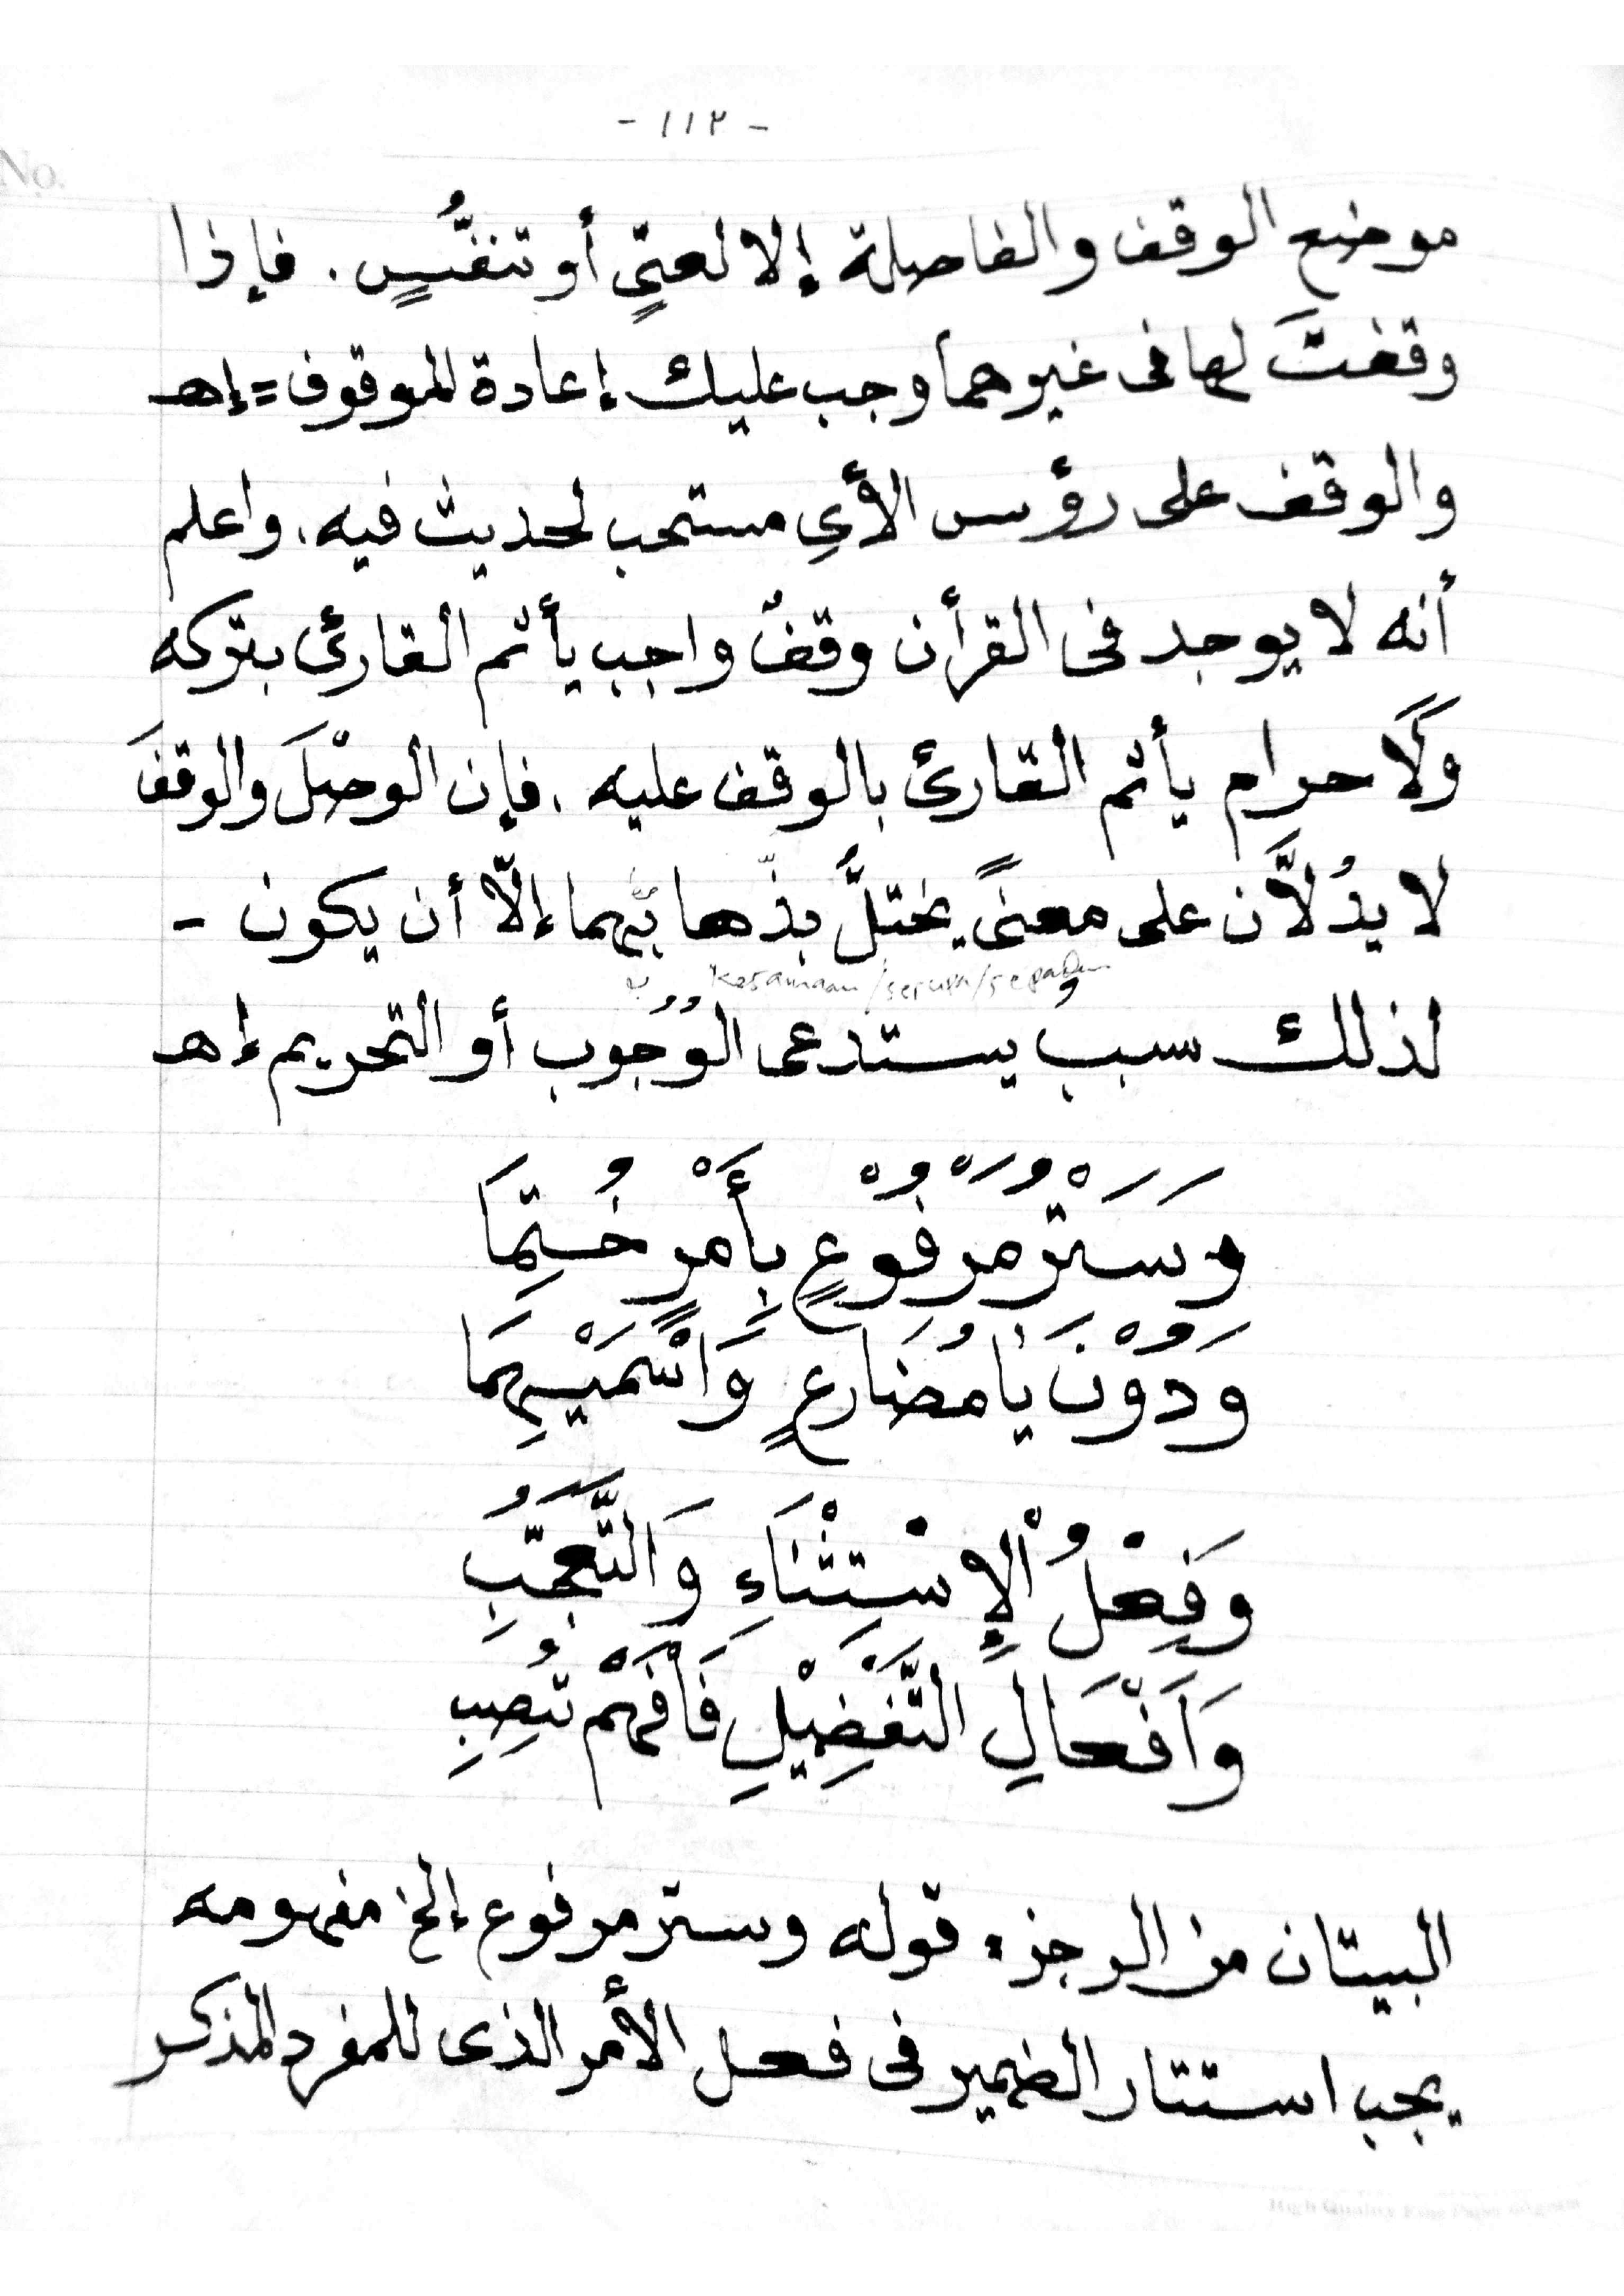 - ١١٢ -
No.
موضع الوقف والفاصلة إلا لعيٍّ أو تنفُّسٍ . فإذا
وقفتَ لها فى غيرهما وجب عليك إعادة الموقوف = إهـ
والوقف على رؤس الأيِ مستحب لحديث فيه . واعلم
أنه لا يوجد فى القرأن وقفٌ واجب يأثم القارئ بتركه
ولَا حرام يأثم القارئ بالوقف عليه . فإن الوصْلَ والوقفَ
لا يدُلَّان على معنىً يختلُّ بذهابهما إلّا أن يكون -
Kesamaan/serupa/sepadan
لذلك سبب يستدعى الوُجُوب أو التحريم إهـ
وَسَتْرُ مَرْفُوْعٍ بِأَمْرٍ خُتِمَا
وَدُوْنَ يَا مُضَارِعٍ وَاسْمَيْهِمَا
وَفِعْلُ الْإِسْتِثْنَاءِ وَالتَّعَجُّبِ
وَاَفْعَالِ التَّفْضِيْلِ فَافْهَمْ تُصِبِ
البيتان من الرجز . قوله وستر مرفوع إلخ مفهومه
يجب استتار الضمير فى فعل الأمر الذى للمفرد المذكر
High Quality Fine Paper